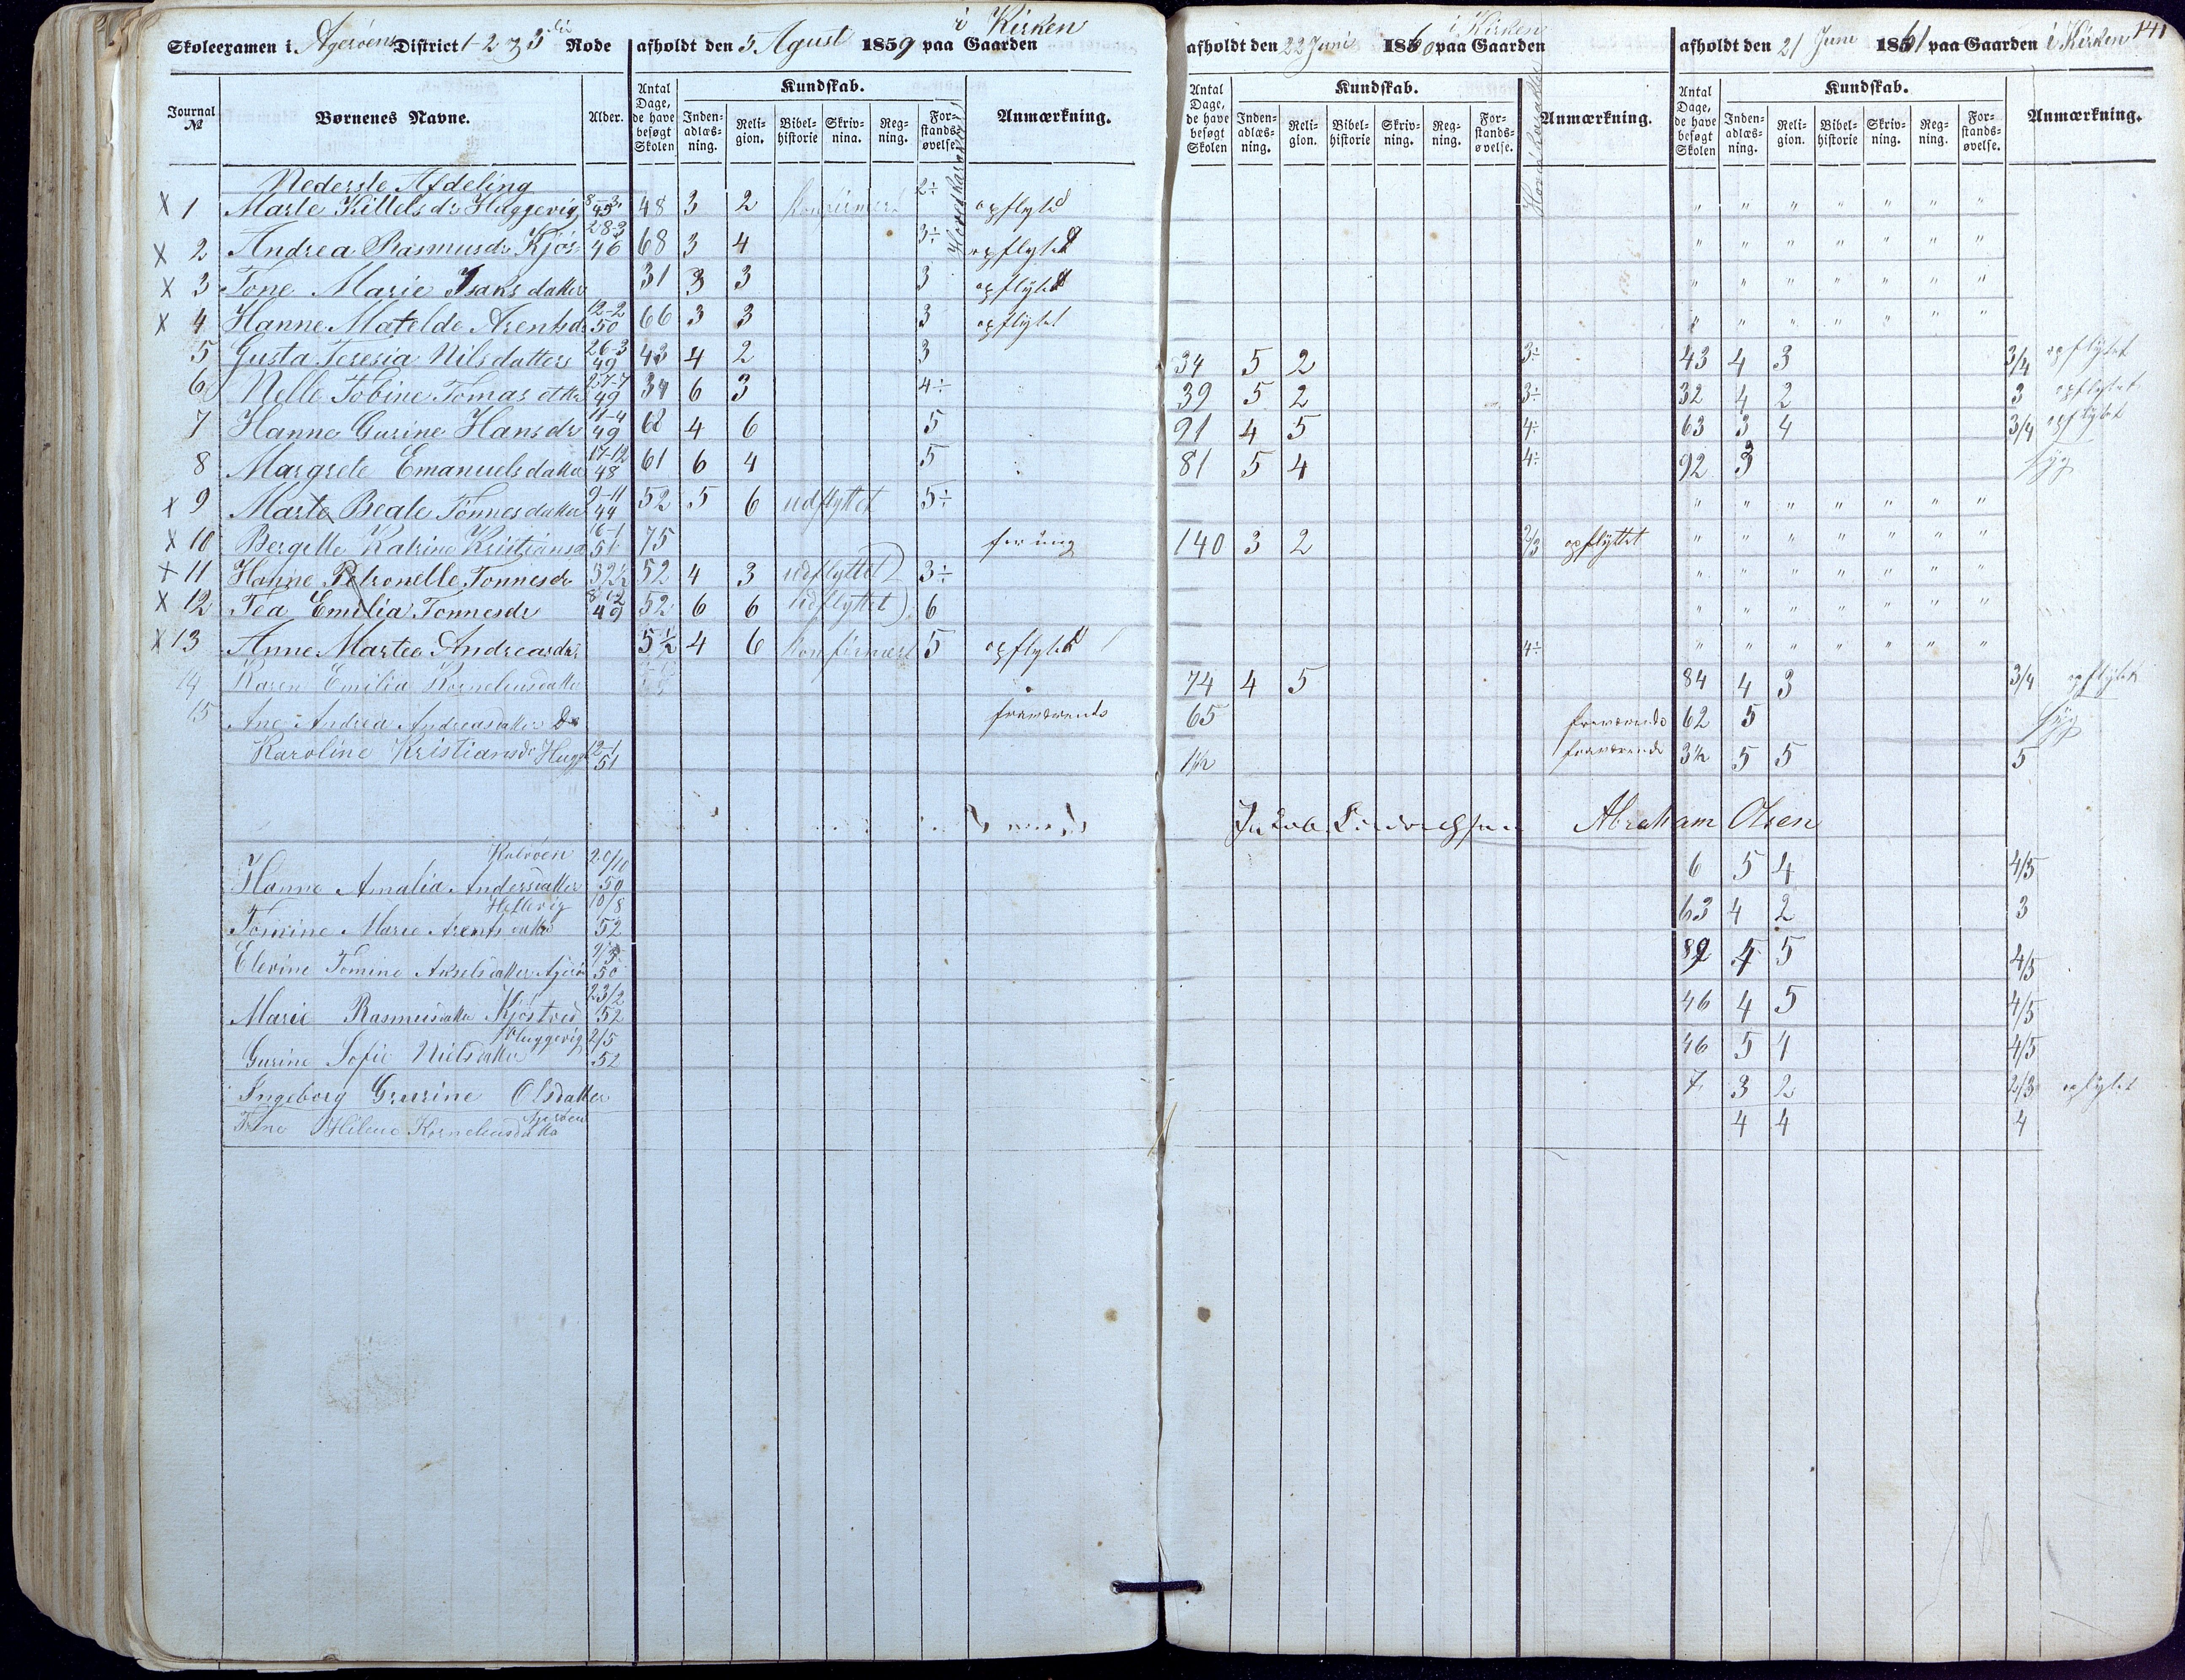 Skoleexamen i Agerøens District 1-2 & 3die Rode afholdt den 5 Agust 1859 paa Gaarden i Kirken
afholdt den 22 Juni 1860 paa Gaarden i Kirken
afholdt den 21 Juni 1861 paa Gaarden i Kirken 141
Journal № Børnenes Navne. Alder. Antal Dage, de have besøgt Skolen Kundskab. Inden-adlæs-ning. Reli-gion. Bibel-historie Skriv-nina. Reg-ning. For-stands-øvelse. Hoved Karakter Anmærkning.
Antal Dage, de have besøgt Skolen Kundskab. Inden-adlæs-ning. Reli-gion. Bibel-historie Skriv-ning. Reg-ning. For-stands-øvelse. Hoved Karakter Anmærkning.
Antal Dage, de have besøgt Skolen Kundskab. Inden-adlæs-ning. Reli-gion. Bibel-historie Skriv-ning. Reg-ning. For-stands-øvelse. Anmærkning.
Nederste Afdeling
x 1 Marte Kittelsdr Huggevig 48 3 2 Konfirmert 2÷ opflyted " " " " " " "
x 2 Andrea Rasmusdr Kjös 28-3 46 68 3 4 3÷ opflyted " " " " " " "
x 3 Tone Marie Isaksdatter 31 3 3 3 opflyted " " " " " " "
x 4 Hanne Matelde Arentsdr 12-2 50 66 3 3 3 opflytet " " " " " " "
5 Gusta Teresia Nilsdatter 26-3 49 43 4 2 3 34 5 2 3÷ 43 4 3 3/4 opflytet
6 Nelle Tobine Tomasdtter 27-7 49 34 6 3 4÷ 39 5 2 3÷ 32 4 2 3 opflytet
7 Hanne Gurine Hansdr 11-4 49 68 4 6 5 91 4 5 4÷ 63 3 4 3/4 opflytet
8 Margrete Emanuelsdatter 17-12 48 61 6 4 5 81 5 4 4÷ 92 3 syg
x 9 Marte Beate Tönnesdatter 9-11 44 52 5 6 udflyttet 5÷ " " " " " " "
x 10 Bergitte Katrine Kristiansd 16-1 51 75 for ung 140 3 2 2/3 opflyttet " " " " " " "
x 11 Hanne Petronelle Tonnesdr 52 4 3 udflyttet 3÷ " " " " " " "
x 12 Tea Emilia Tonnesdr 49 52 6 6 udflyttet 6 " " " " " " "
x 13 Anne Martea Andreasdr 5½ 4 6 Konfirmert 5 opflyted 4÷ " " " " " " "
14 Karen Emilia Korneliusdatter 74 4 5 84 4 3 3/4 opflytet
15 Ane Andrea Andreasdatter fraværende 65 fraværende 62 5 syg
Karoline Kristiansdr Hugg 12-1 51 1½ fraværende 3½ 5 5 5
Abraham Olsen
Hanne Amalia Andersdatter Kalvöen 20/10 50 6 5 4 4/5
Tomine Marie Arentsdatter Hellevig 10/8 52 63 4 2 3
Elevine Tomine Akselsdatter 50 89 4 5 4/5
Marie Rasmusdatter Kjöstved 23/2 52 46 4 5 4/5
Gurine Sofie Nielsdatter Huggevig 2/5 52 46 5 4 4/5
Ingeborg Gurine Olsdatter 7 3 2 2/3 opflytet
Tine Helene Korneliusdatter Agerøen 4 4 4